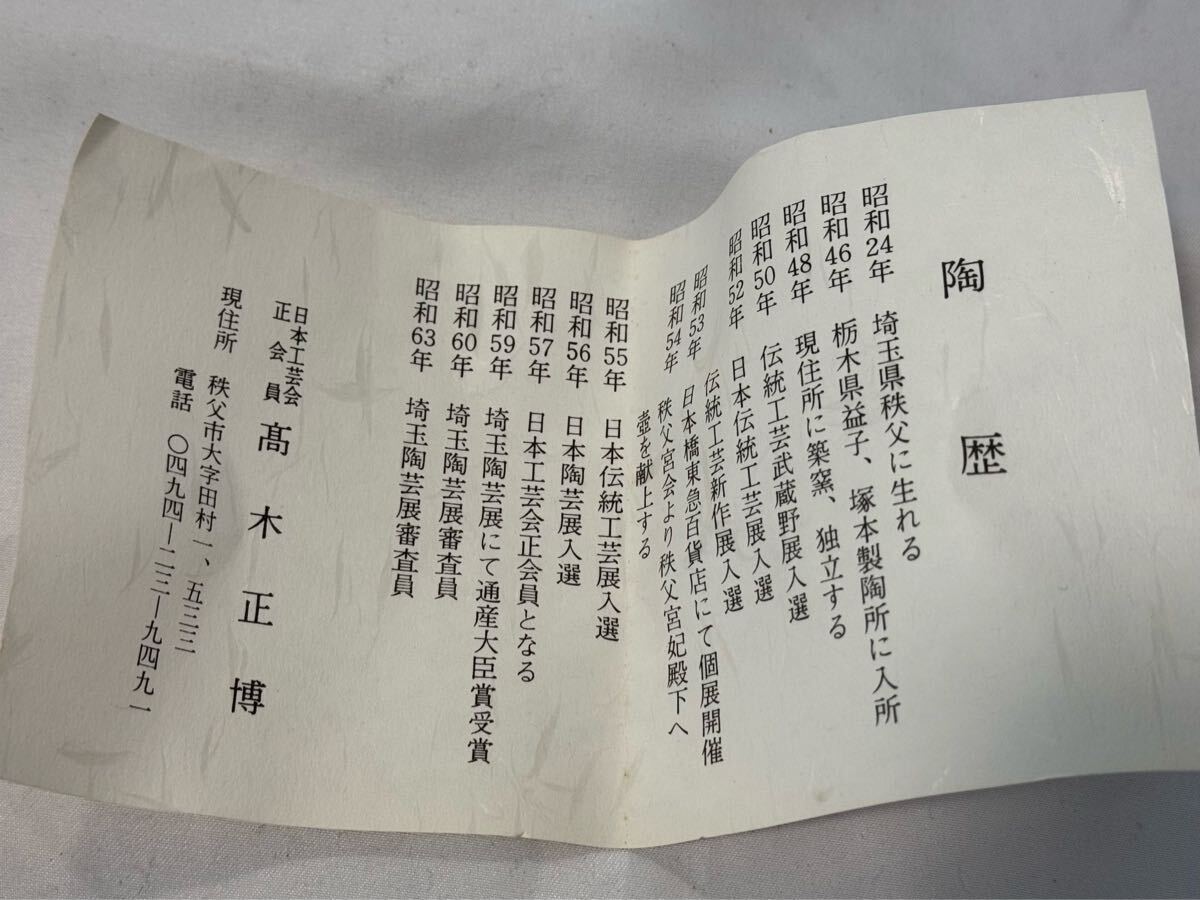 陶歴
昭和24年 埼玉県秩父に生れる
昭和46年 栃木県益子、塚本製陶所に入所
昭和48年 現住所に築窯、独立する
昭和50年 伝統工芸武蔵野展入選
昭和52年 日本伝統工芸展入選
伝統工芸新作展入選
昭和53年 日本橋東急百貨店にて個展開催
昭和54年 秩父宮会より秩父宮妃殿下へ
壺を献上する
昭和55年 日本伝統工芸展入選
昭和56年 日本陶芸展入選
昭和57年 日本工芸会正会員となる
昭和59年 埼玉陶芸展にて通産大臣賞受賞
昭和60年 埼玉陶芸展審査員
昭和63年 埼玉陶芸展審査員
日本工芸会
正会員 髙木正博
現住所 秩父市大字田村一、五三三
電話 〇四九四―二三―九四九一